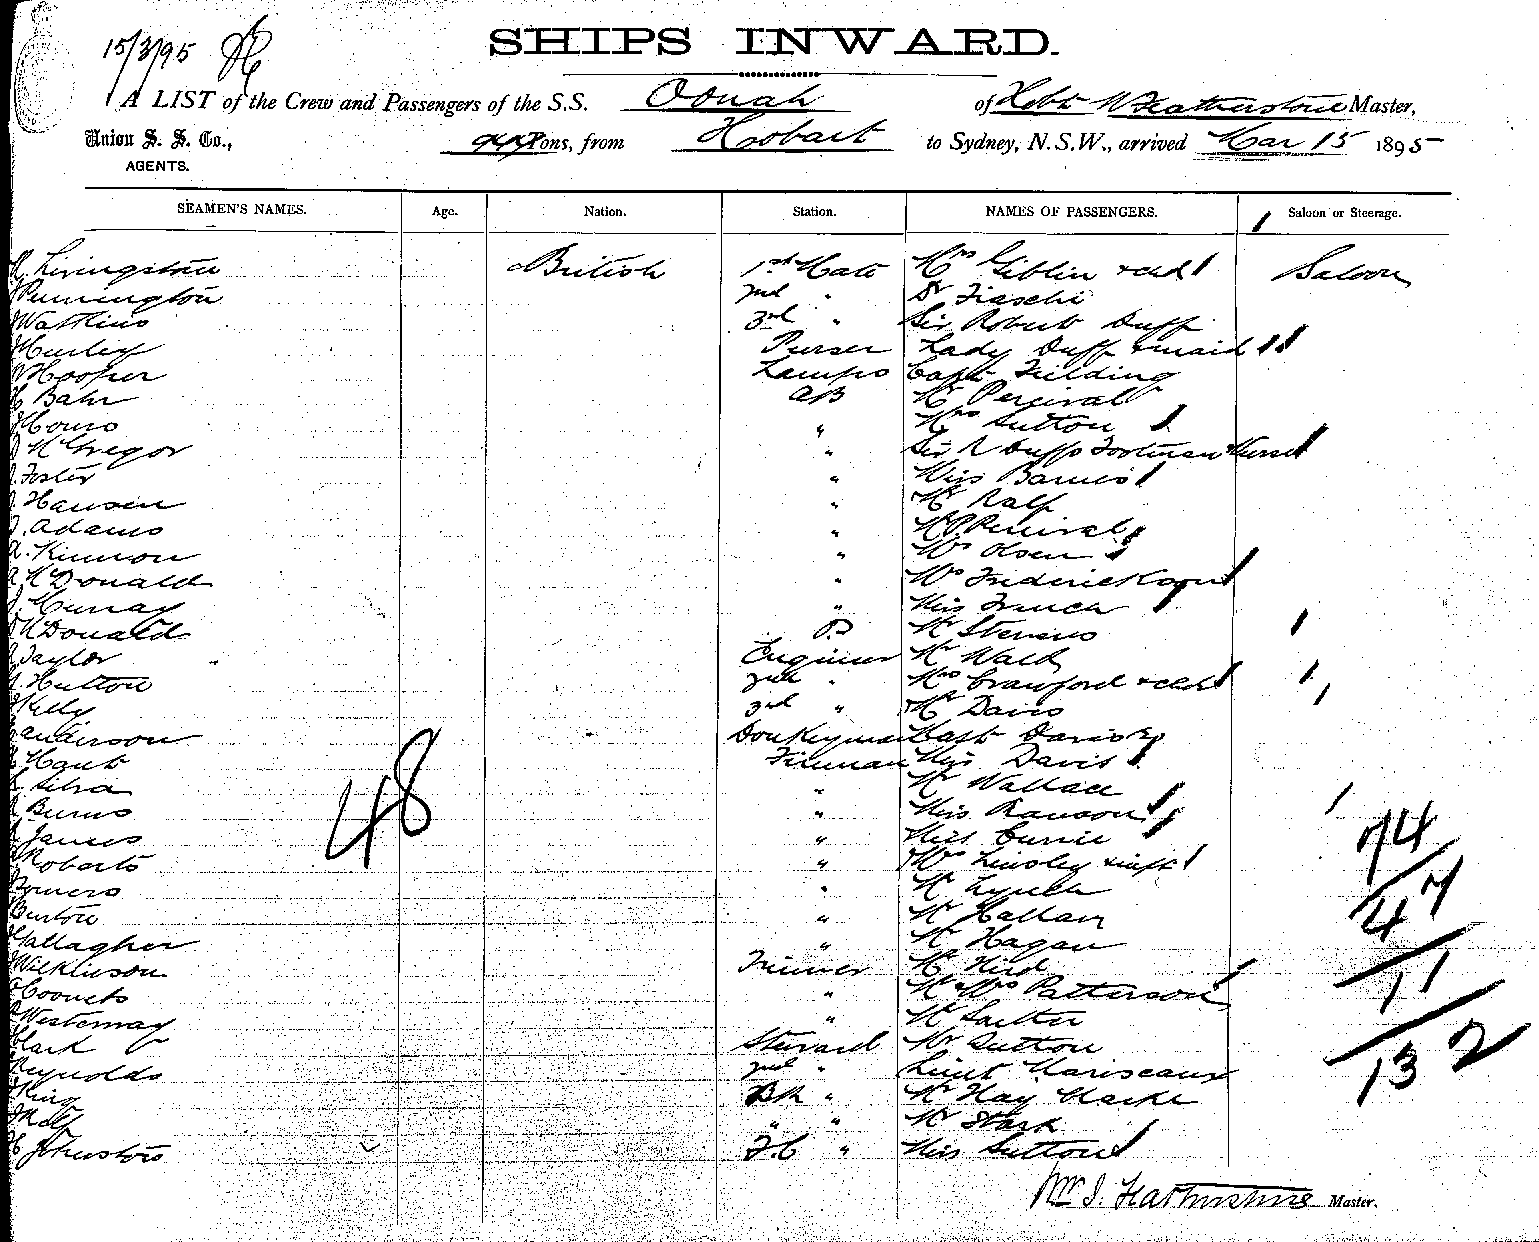 15/3/95
SHIPS INWARD.
A LIST of the Crew and Passengers of the S.S. Oonah of Hobt W Featherstone Master,
Union S. S. Co., Tons, from Hobart to Sydney, N.S.W., arrived Mar 15 1895
AGENTS.
SEAMEN'S NAMES. Age. Nation. Station. NAMES OF PASSENGERS. Saloon or Steerage.
Livingston British 1st Mate Mrs Giblin & chd Saloon
Pennington 2nd " Dr Fiaschi
Watkins 3rd " Sir Robert Duff
Hurley Purser Lady Duff & maid
Hooper Lamps Capt Feilding
Bahr AB Mr Percival
" Mrs Sutton
McGregor " Sir R Duffs Footman Nurse
Foster " Miss Barnes
Hansen " Mr Ralf
J. Adams " Percival
A. Kinnon " Mrs Olsen
A McDonald " Mrs
J. Murray " Miss French
McDonald OS Mr Stevens
Taylor Engineer Mr
Hutton 2nd " Mrs Crawford & chd
Kelly 3rd " Mr Davis
Sanderson Donkeyman Capt Davis
Fireman Miss Davis
Silva " Mr Wallace
Burns " Miss Ranson
James " Miss Currie
Roberts " Mrs Linsley & inft
Bowers " Mr Lynch
Burton " Mr Hallam
Gallagher " Mr Hagan
Wilkinson Trimmer Mr Hird
" Mr & Mrs Patterson
Westernay " Mr
Clark Steward Mr Sutton
Reynolds 2nd " Lieut
King BR " Mr Hay Clarke
" " Mr Stark
Johnston F.C " Miss Sutton
48
74
47
11
132
Wm J. Featherstone Master.